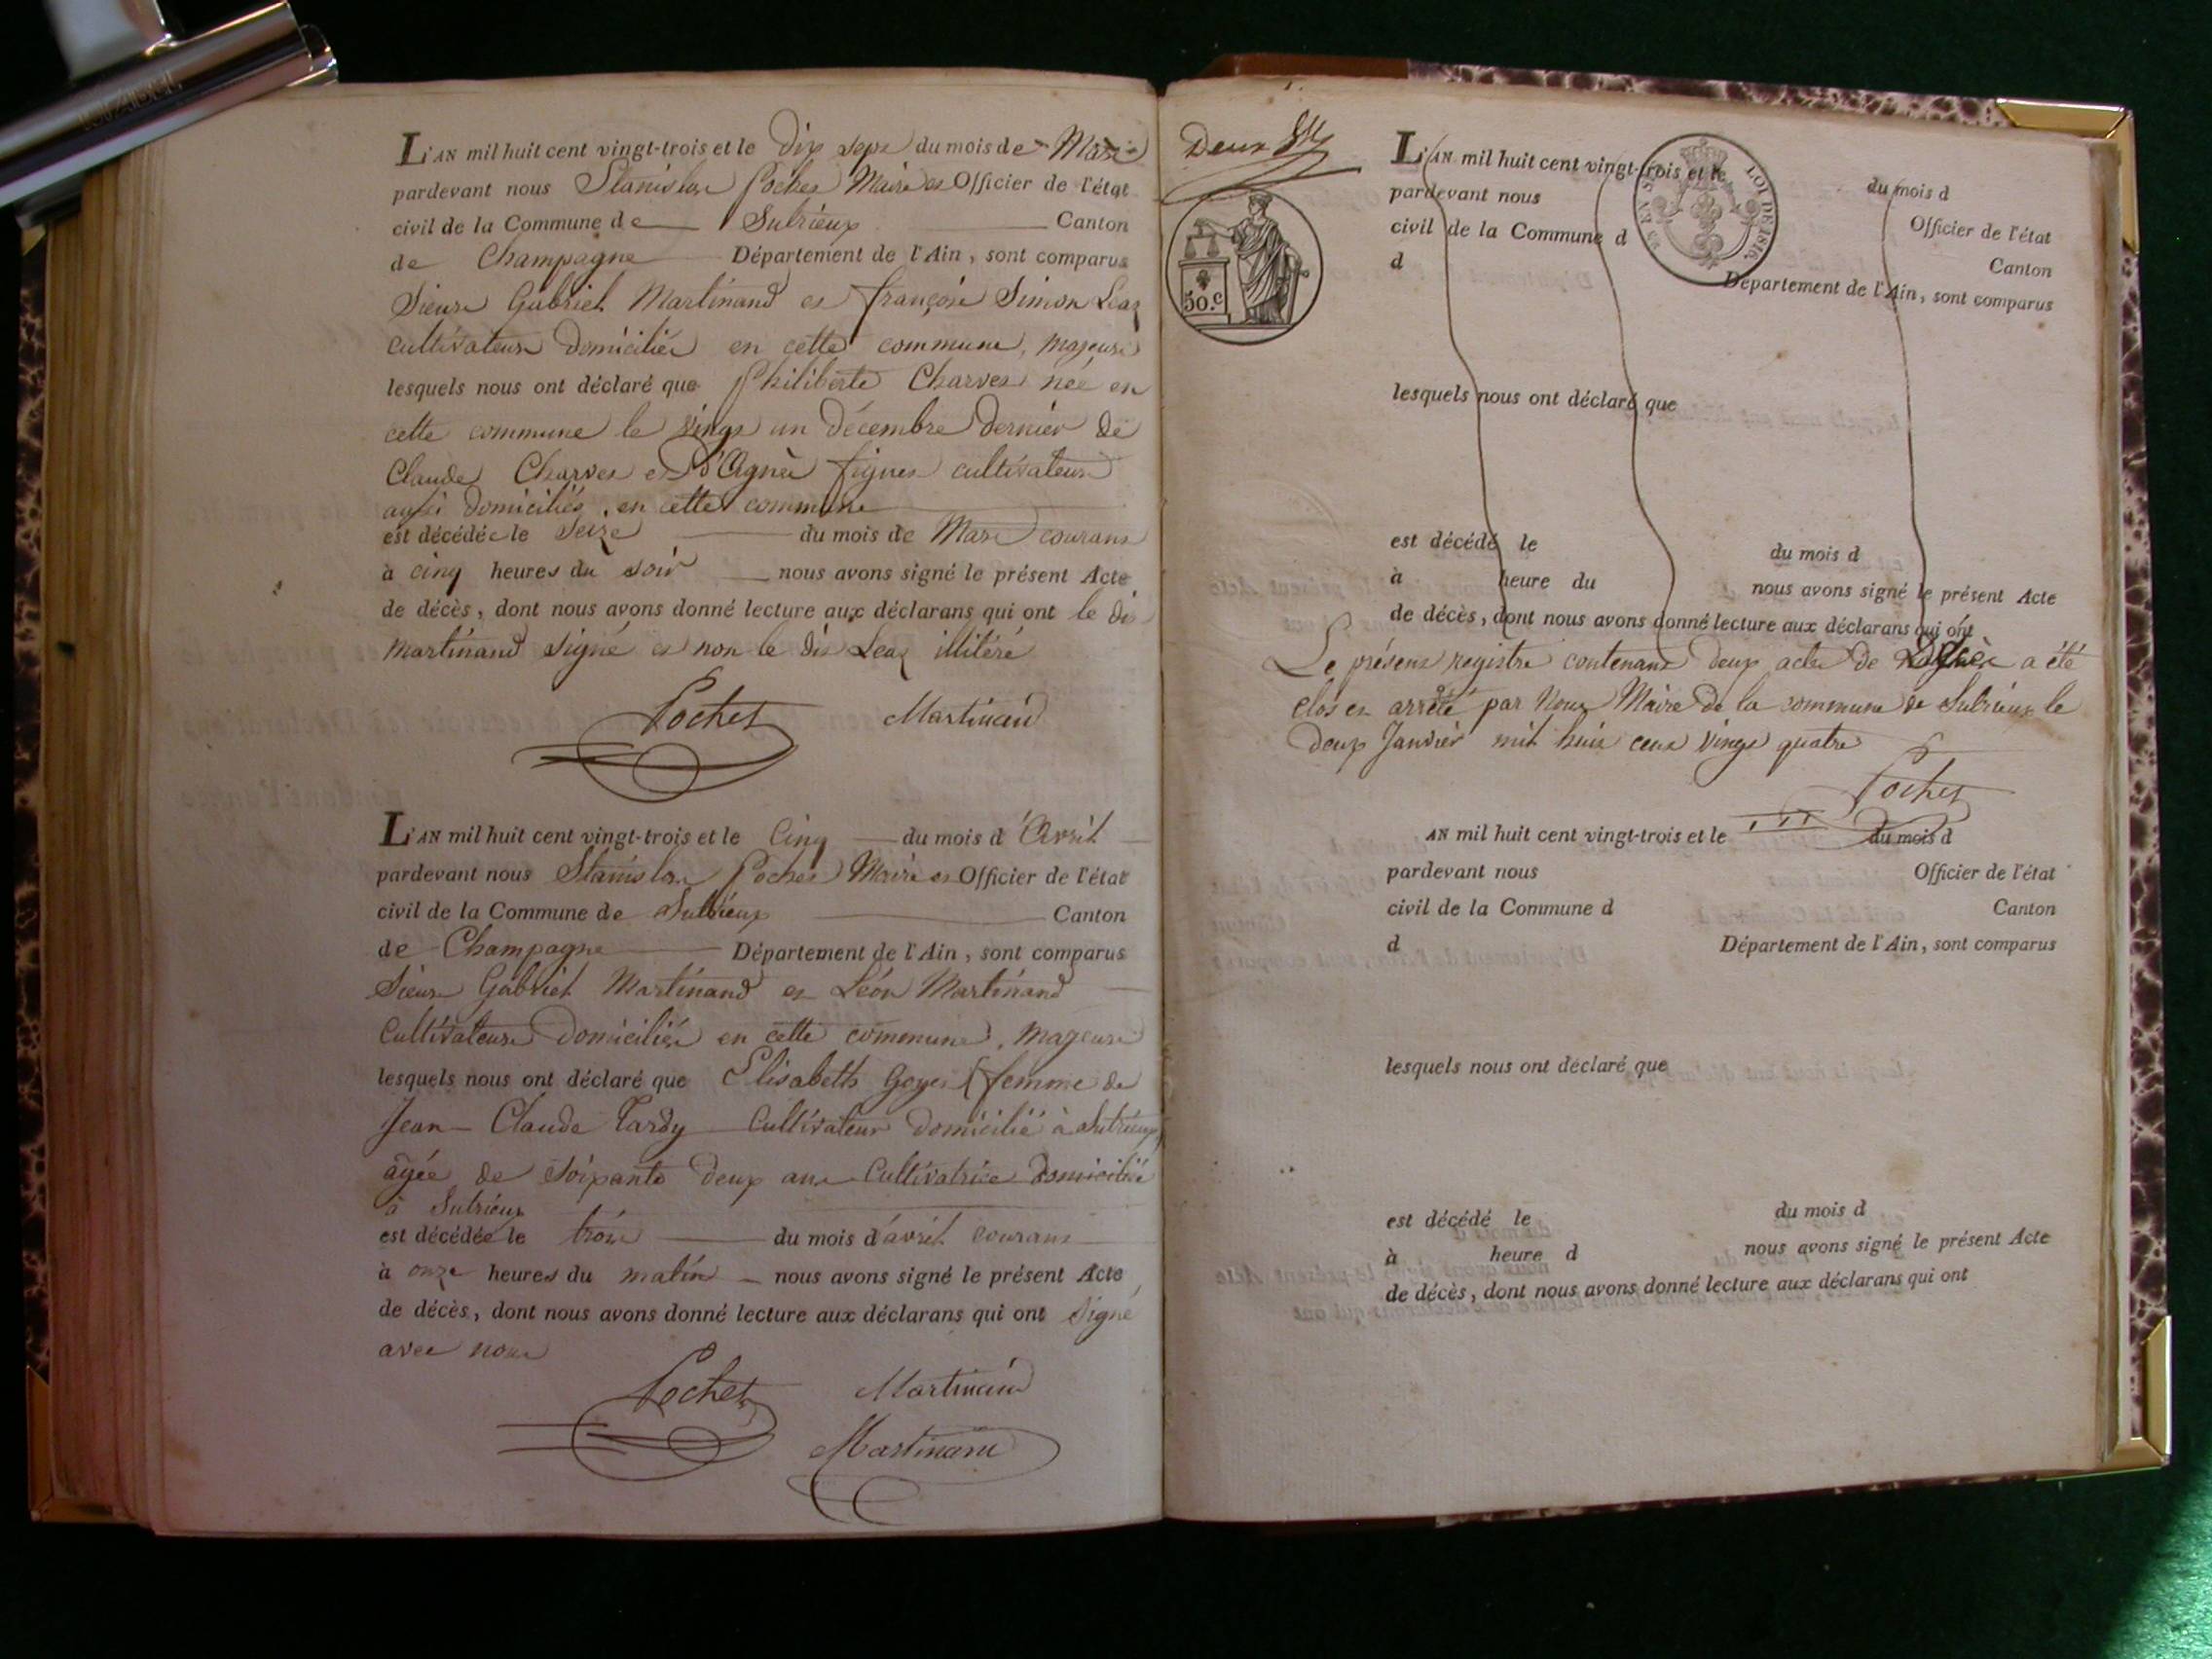 L'AN mil huit cent vingt-trois et le Dix Sept du mois de Mars
pardevant nous Stanislas Pochet Maire et Officier de l'état
civil de la Commune de Sutrieux Canton
de Champagne Département de l'Ain, sont comparus
Sieurs Gabriel Martinand et françois Simon Leaz
cultivateurs domiciliés en cette commune, majeurs
lesquels nous ont déclaré que Philiberte Charvet née en
cette commune le vingt un décembre dernier de
Claude Charvet et d'Agnès cultivateurs
aussi domiciliés en cette commune
est décédée le Seize du mois de Mars courant
à cinq heures du soir nous avons signé le présent Acte
de décès, dont nous avons donné lecture aux déclarans qui ont le dit
Martinand signé et non le dit Leaz illitéré
Pochet Martinand
L'AN mil huit cent vingt-trois et le Cinq du mois d'Avril
pardevant nous Stanislas Pochet Maire et Officier de l'état
civil de la Commune de Sutrieux Canton
de Champagne Département de l'Ain, sont comparus
Sieurs Gabriel Martinand et Léon Martinand
Cultivateurs Domiciliés en cette commune, majeurs
lesquels nous ont déclaré que Elisabeth Goyet femme de
Jean-Claude Tardy Cultivateur domicilié à Sutrieux
âgée de Soixante deux ans Cultivatrice domiciliée
à Sutrieux
est décédée le trois du mois d'avril courant
à onze heures du matin nous avons signé le présent Acte
de décès, dont nous avons donné lecture aux déclarans qui ont signé
avec nous
Pochet Martinand
Martinand
Deux
50.c
LOI DE 1816.
L'AN mil huit cent vingt-trois et le du mois d
pardevant nous Officier de l'état
civil de la Commune d Canton
d Département de l'Ain, sont comparus
lesquels nous ont déclaré que
est décédé le du mois d
à heure du nous avons signé le présent Acte
de décès, dont nous avons donné lecture aux déclarans qui ont
Le présent registre contenant deux actes de Décès a été
clos et arrêté par Nous Maire de la commune de Sutrieux le
deux Janvier mil huit cent vingt quatre
Pochet
AN mil huit cent vingt-trois et le du mois d
pardevant nous Officier de l'état
civil de la Commune d Canton
d Département de l'Ain, sont comparus
lesquels nous ont déclaré que
est décédé le du mois d
à heure d nous avons signé le présent Acte
de décès, dont nous avons donné lecture aux déclarans qui ont